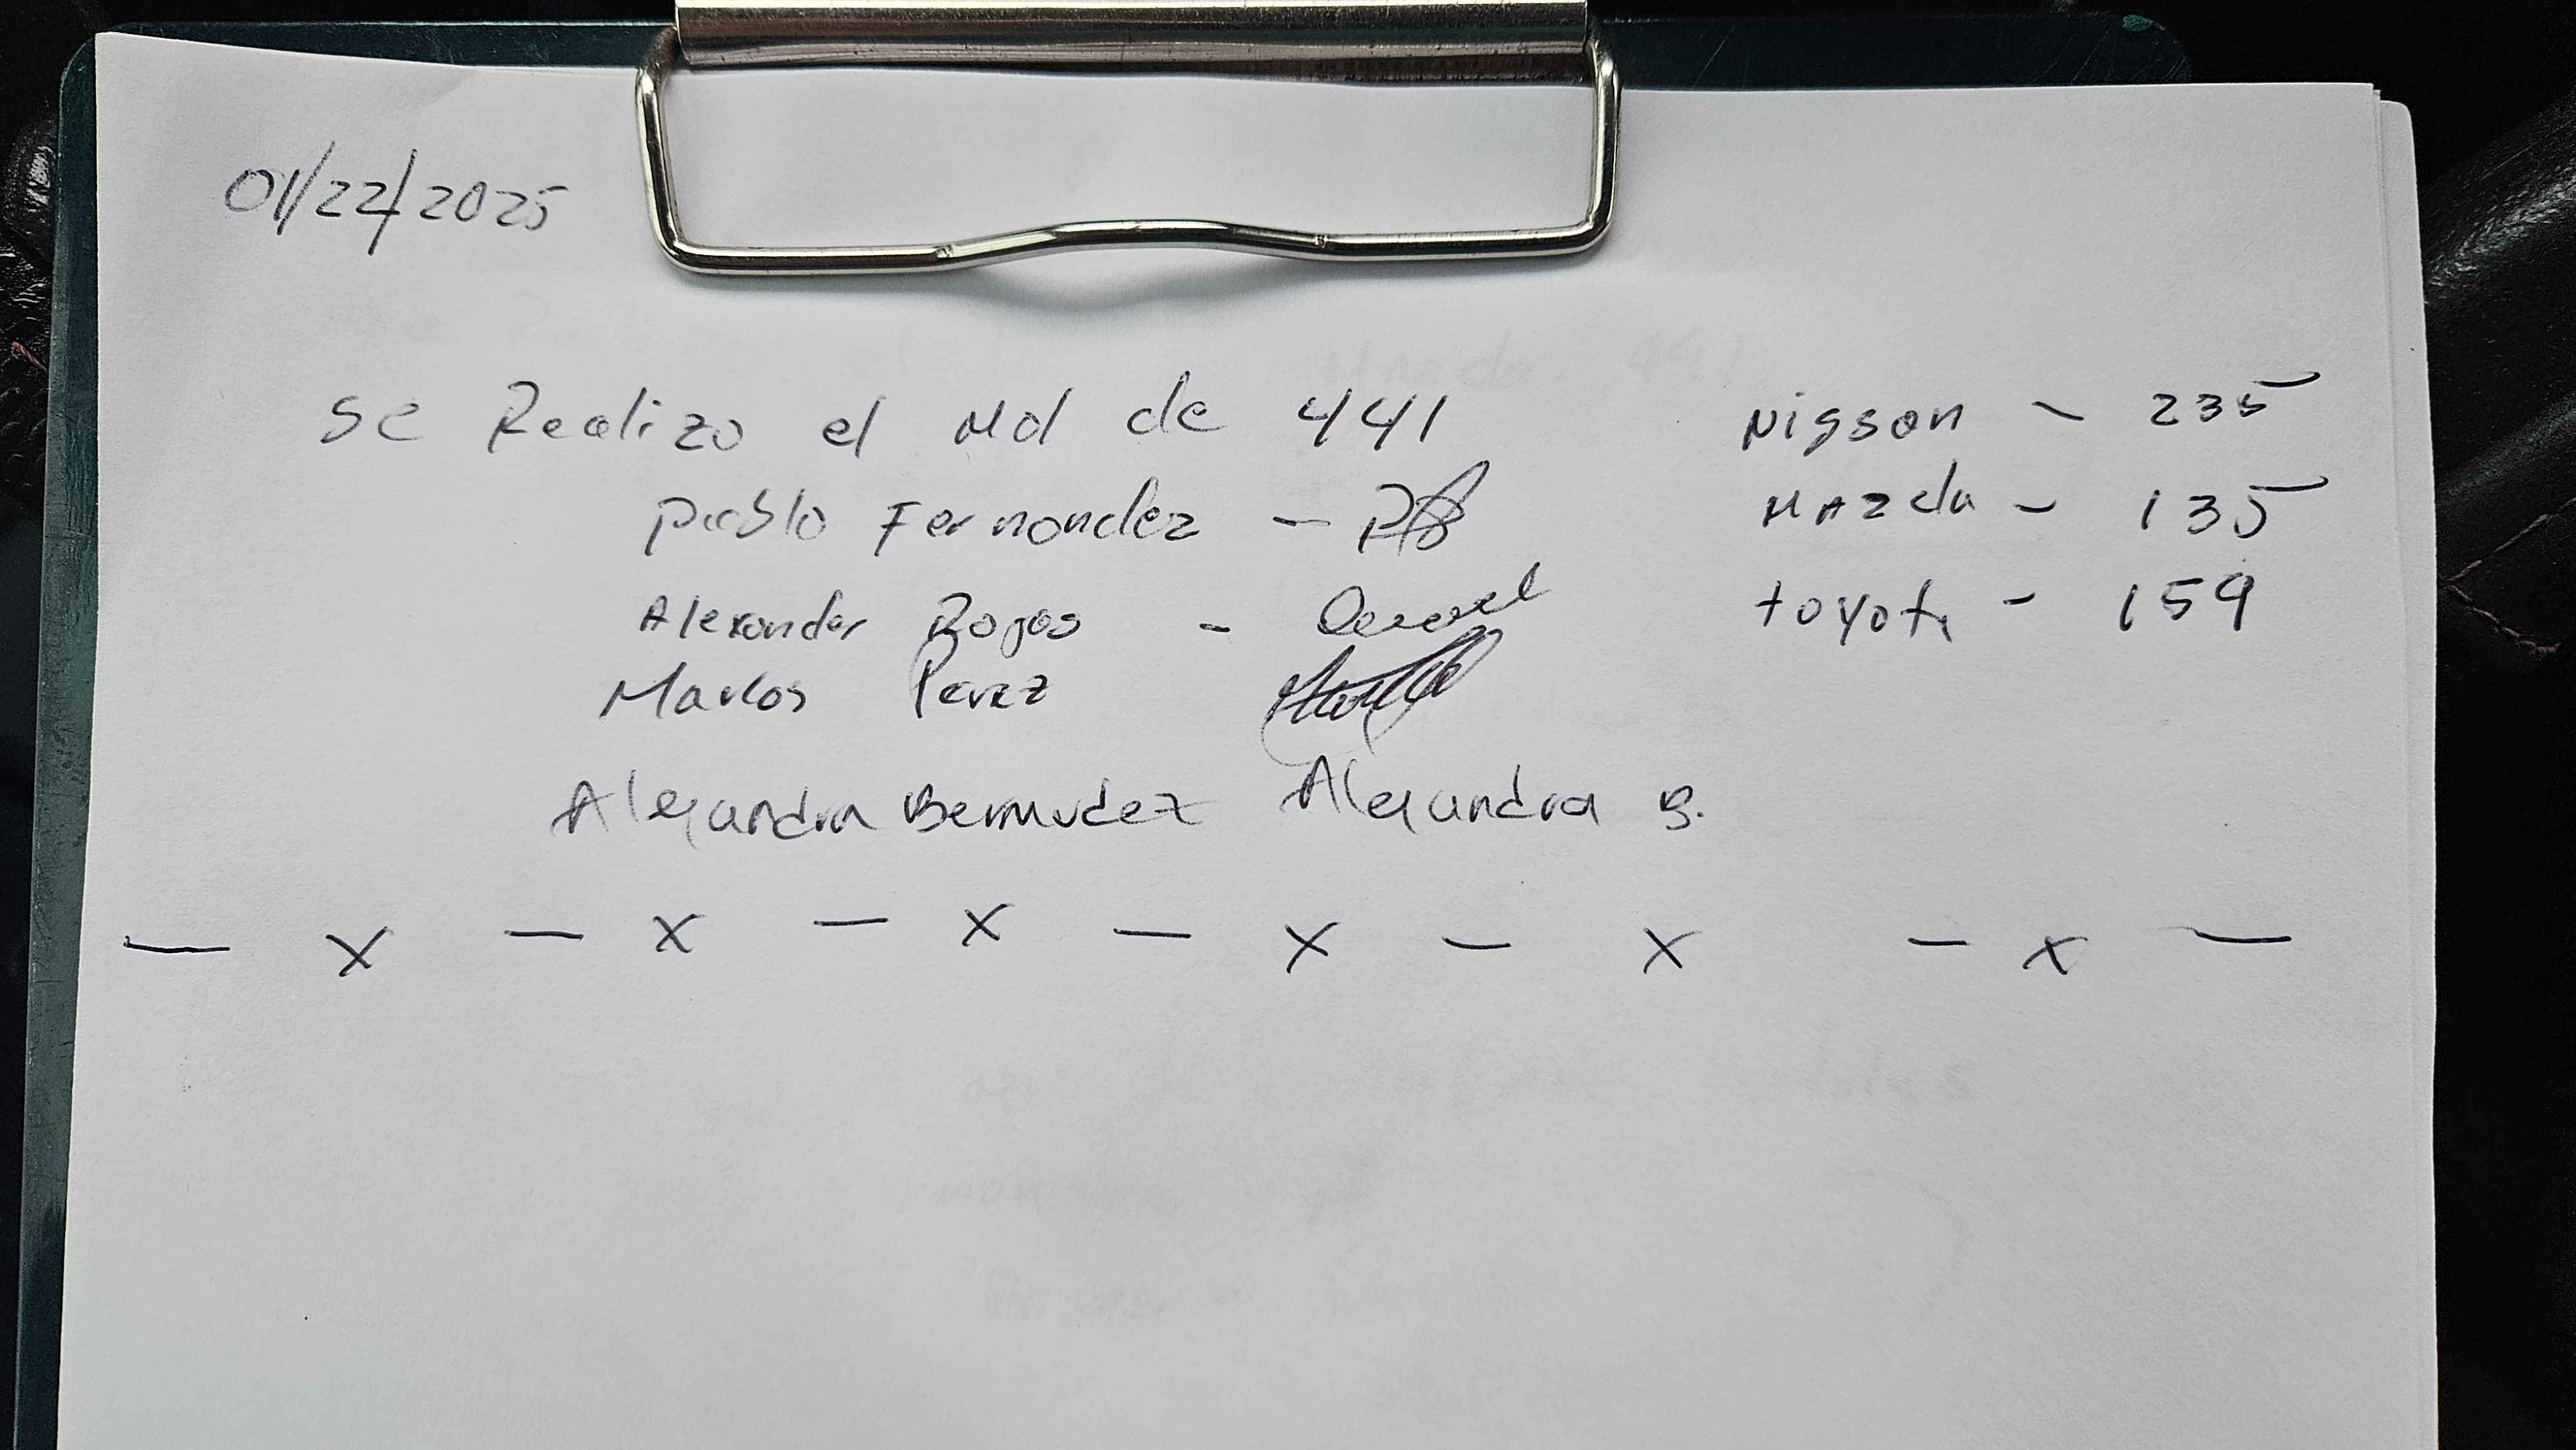 01/22/2025
Se Realizo el Md de 441 Nissan - 235
Pablo Fernandez - Mazda - 135
Alexander Rojas - toyota - 159
Marlos Perez
Alejandra Bermudez Alejandra B.
— x — x — x — x — x — x —